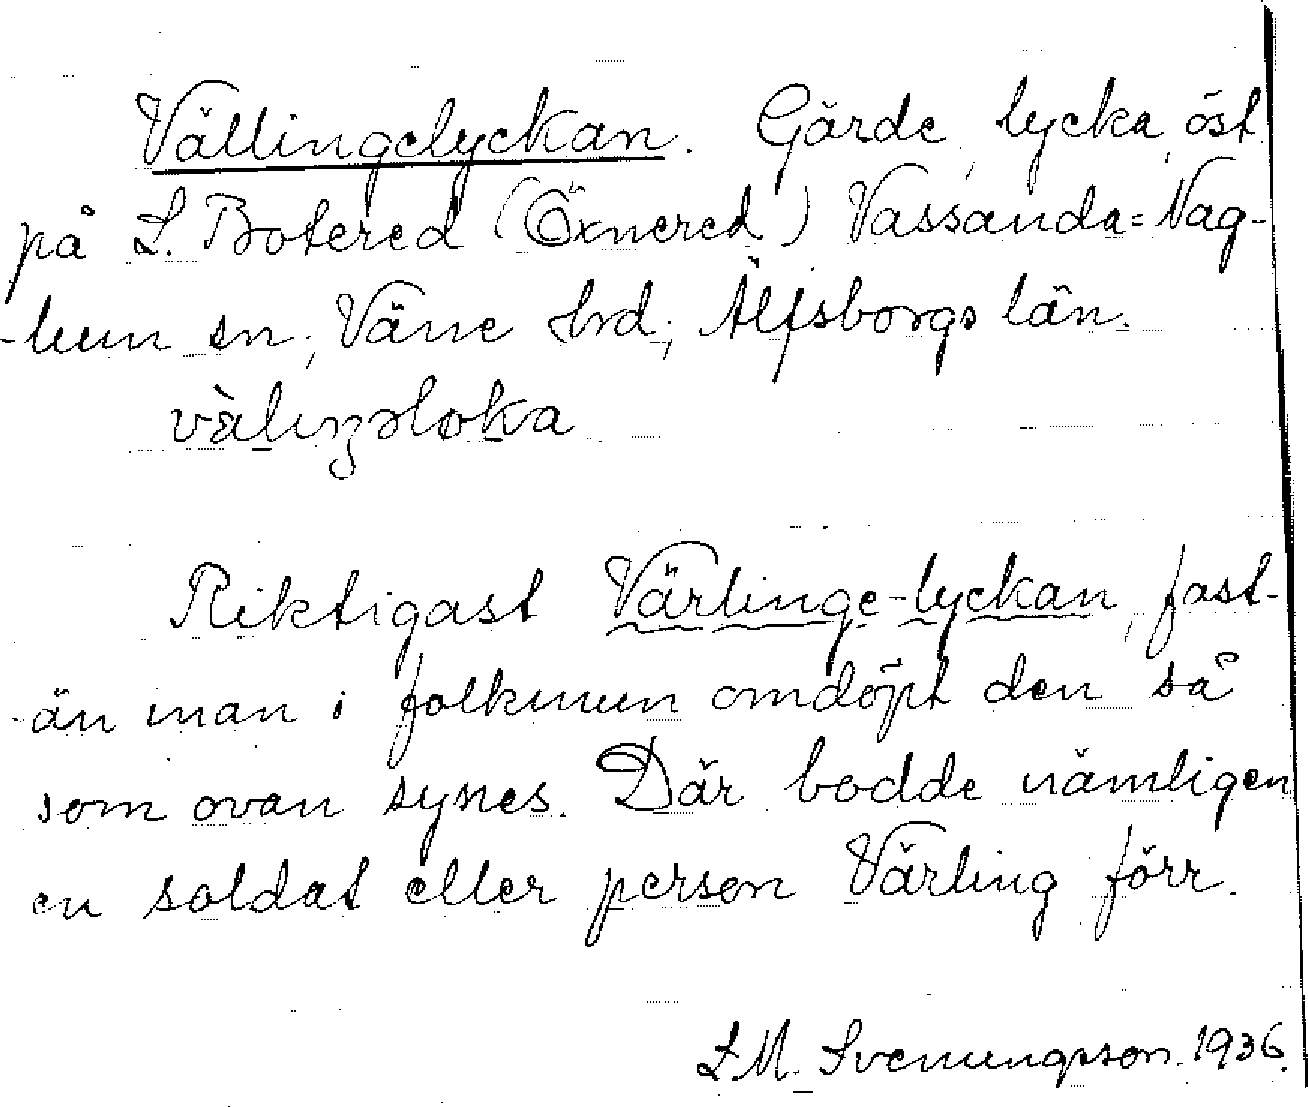 Vällingelyckan. Gärde, lycka, öst
på L. Botered (Öxnered) Vassanda=Nag-
-lum sn; Väne hrd; Älfsborgs län.
Riktigast Värlinge-lyckan, fast-
-än man i folkmun omdöpt den så
som ovan synes. Där bodde nämligen
en soldat eller person Värling förr.
L.M. Svenungsson. 1936.